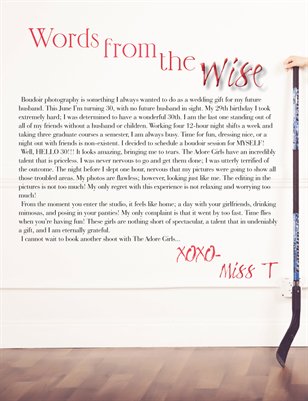 Words from the Wise
Boudoir photography is something I always wanted to do as a wedding gift for my future
husband. This June I'm turning 30, with no future husband in sight. My 29th birthday I took
extremely hard; I was determined to have a wonderful 30th. I am the last one standing out of
all of my friends without a husband or children. Working four 12-hour night shifts a week and
taking three graduate courses a semester, I am always busy. Time for fun, dressing nice, or a
night out with friends is non-existent. I decided to schedule a boudoir session for MYSELF!
Well, HELLO 30!!! It looks amazing, bringing me to tears. The Adore Girls have an incredibly
talent that is priceless. I was never nervous to go and get them done; I was utterly terrified of
the outcome. The night before I slept one hour, nervous that my pictures were going to show all
those troubled areas. My photos are flawless; however, looking just like me. The editing in the
pictures is not too much! My only regret with this experience is not relaxing and worrying too
much!
From the moment you enter the studio, it feels like home; a day with your girlfriends, drinking
mimosas, and posing in your panties! My only complaint is that it went by too fast. Time flies
when you're having fun! These girls are nothing short of spectacular, a talent that in undeniably
a gift, and I am eternally grateful.
I cannot wait to book another shoot with The Adore Girls...
XOXO-
Miss T